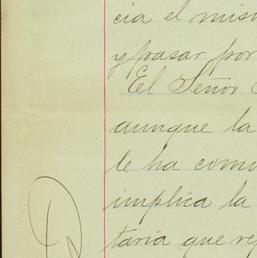 cia el mism
y pasar por
El Señor
aunque la
le ha com
implica la
taria que re